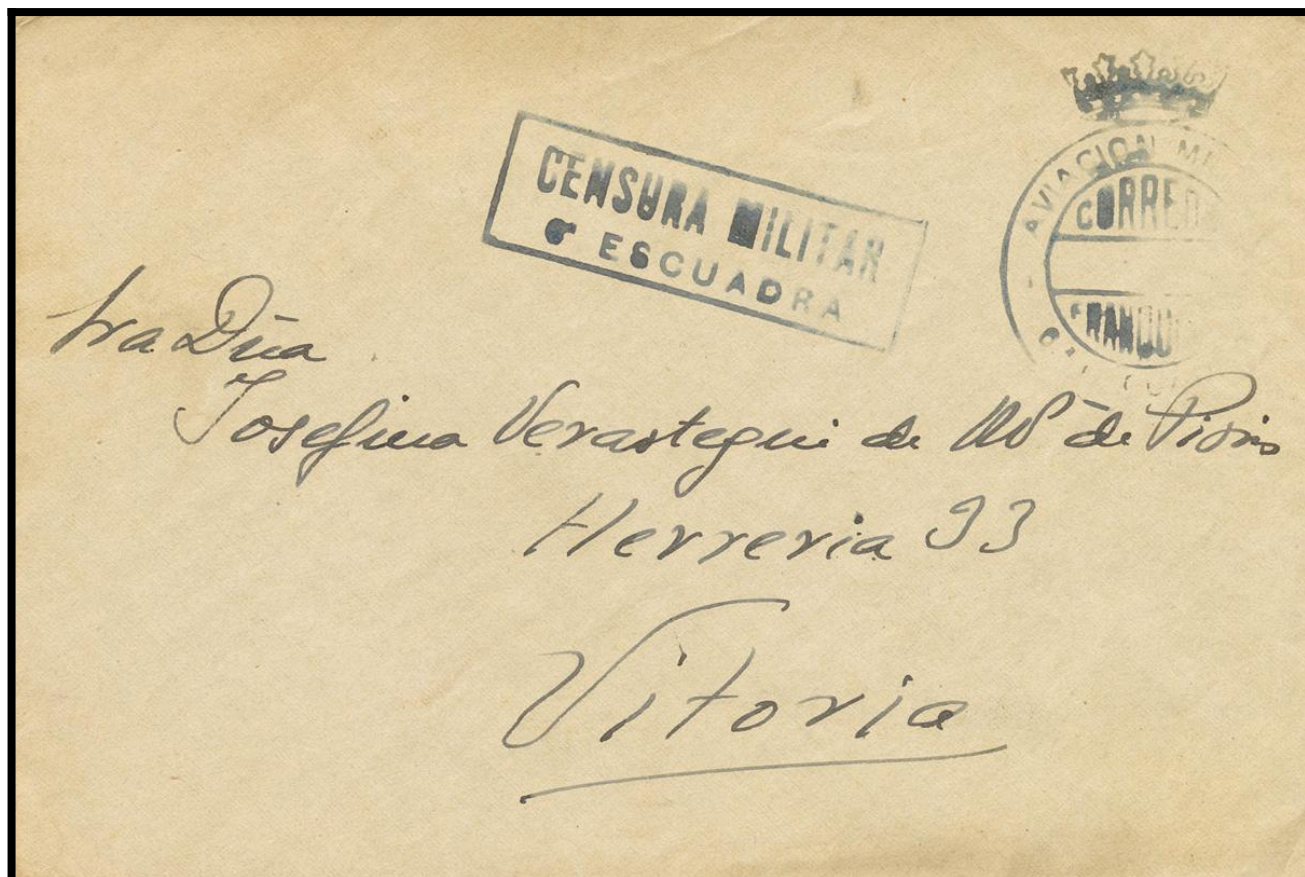 CENSURA MILITAR
6ª ESCUADRA
AVIACION MI
CORREO
FRANQU
Sra Dña
Josefina Verastegui de
Herreria 93
Vitoria